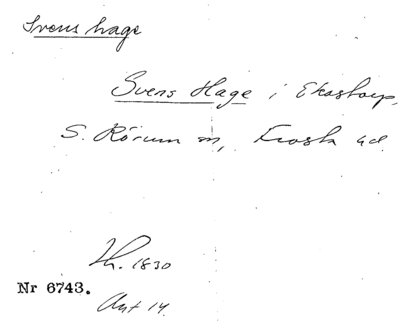 Svens hage
Svens Hage i Ekastorp,
S. Rörum sn, Frosta hd.
Th. 1830
Nr 6743.
Ant 14.